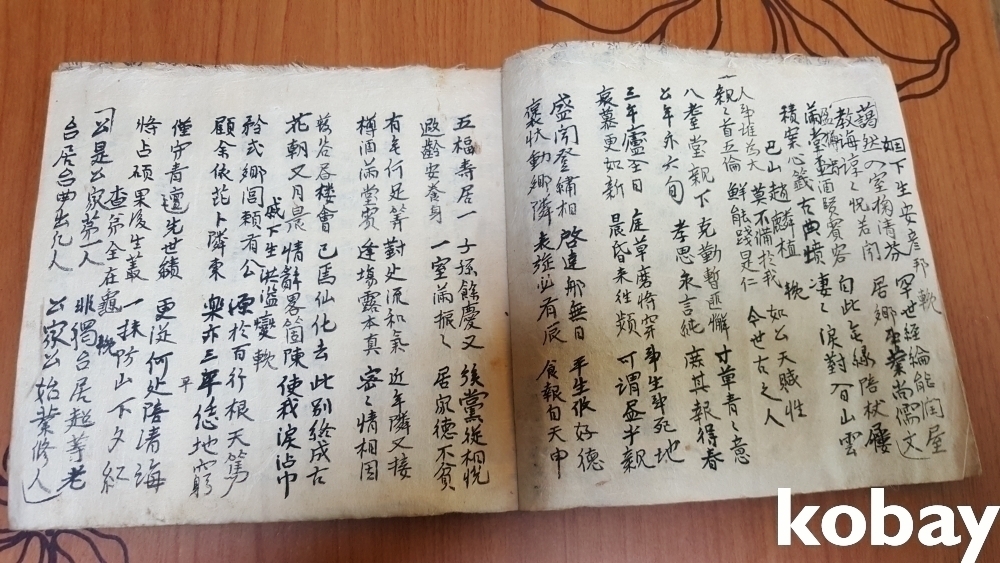 姻下生安彦邦 輓
罕世經綸能潤屋
藹然入室掬清芬 居鄉事業尚儒文
教誨諄〻怳若聞 自此無緣陪杖屨
滿堂盃酒賢賓客 凄〻淚對百山雲
積案心籤古典墳
巴山趙麟植 輓
人事誰為大 莫不備於我 如公天賦性
親〻首五倫 鮮能踐是仁 今世古之人
八耋堂親下 克勤暫匪懈 寸草青〻意
七年亦六旬 孝思永言純 庶其報得春
三年廬墓日 庭草磨將穿 事生事死地
哀慕更如新 晨昏來往頻 可謂盡半親
盛聞登繡相 啓達那無日 平生依好德
襃狀動鄉隣 表旌必有辰 食報自天申
五福壽居一 子孫餘慶又 後黨從相悅
遐齡安養身 一室滿振〻 居家德不貧
有年何足筭 對此流和氣 近年隣又接
樽酒滿堂賓 逢場露本真 密〻情相因
樓會 已焉仙化去 此別終成古
花朝又月晨 情辭畧箇陳 使我淚沾巾
戚下生洪 燮 輓
矜式鄉閭賴有公 源於百行根天篤
顧余依芘卜隣東 樂亦三年 地窮
僅守青氈先世績 更從何處陪清誨
將占碩果後生叢 一抹防山下夕紅
查弟全在龜 輓
公是公家第一人 非獨台居 等老
台居台 出凡人 公家公始業修人